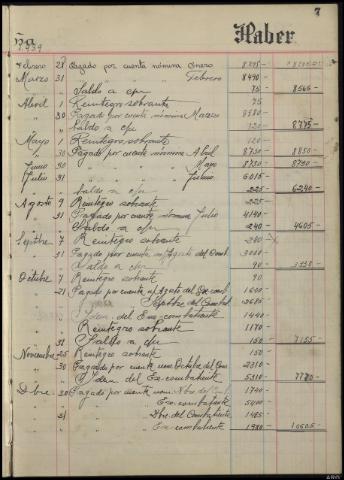 7
ña Haber
1.939
Febrero 28 Pagado por cuenta nómina Enero 8575-
Marzo 31 " " " " Febrero 8490-
" " Saldo a c/n 75 8565-
Abril 1 Reintegro sobrante 75
" 30 Pagado por cuenta nómina Marzo
" " Saldo a c/n 8775-
Mayo 1 Reintegro sobrante 120
" 30 Pagado por cuenta nómina Abril 8730- 8850-
Junio 30 " " " " Mayo 8750- 8750-
Julio 31 " " " " Junio 6015-
" " Saldo a c/n 225 6240-
Agosto 9 Reintegro sobrante 225-
" 31 Pagado por cuenta nómina Julio 4140-
" " Saldo a c/n 240 4605-
Septbre 7 Reintegro sobrante 240-
" 31 Pagado por cuenta n/ Agosto del Comb.
" " Saldo a c/n 90
Octubre 7 Reintegro sobrante 90
" 21 Pagado por cuenta n/ Agosto del Exc. comb. 1600-
" " Septbre del Combat.
" " Idem. del Exc. combatiente 1440-
" " Reintegro sobrante 1170
" 31 Saldo a c/n 150 7155-
Noviembre 25 Reintegro sobrante 150-
" 30 Pagado por cuenta nom. Octubre del Com. 2310
" " Idem del Ex-combatiente 5310 7770-
Dbre 30 Pagado por cuenta nom. Nbre del
" " Exc. combatiente 5400
" 31 Dbre. del Combatiente 1485-
" " Exc-combatiente 1980 10605-